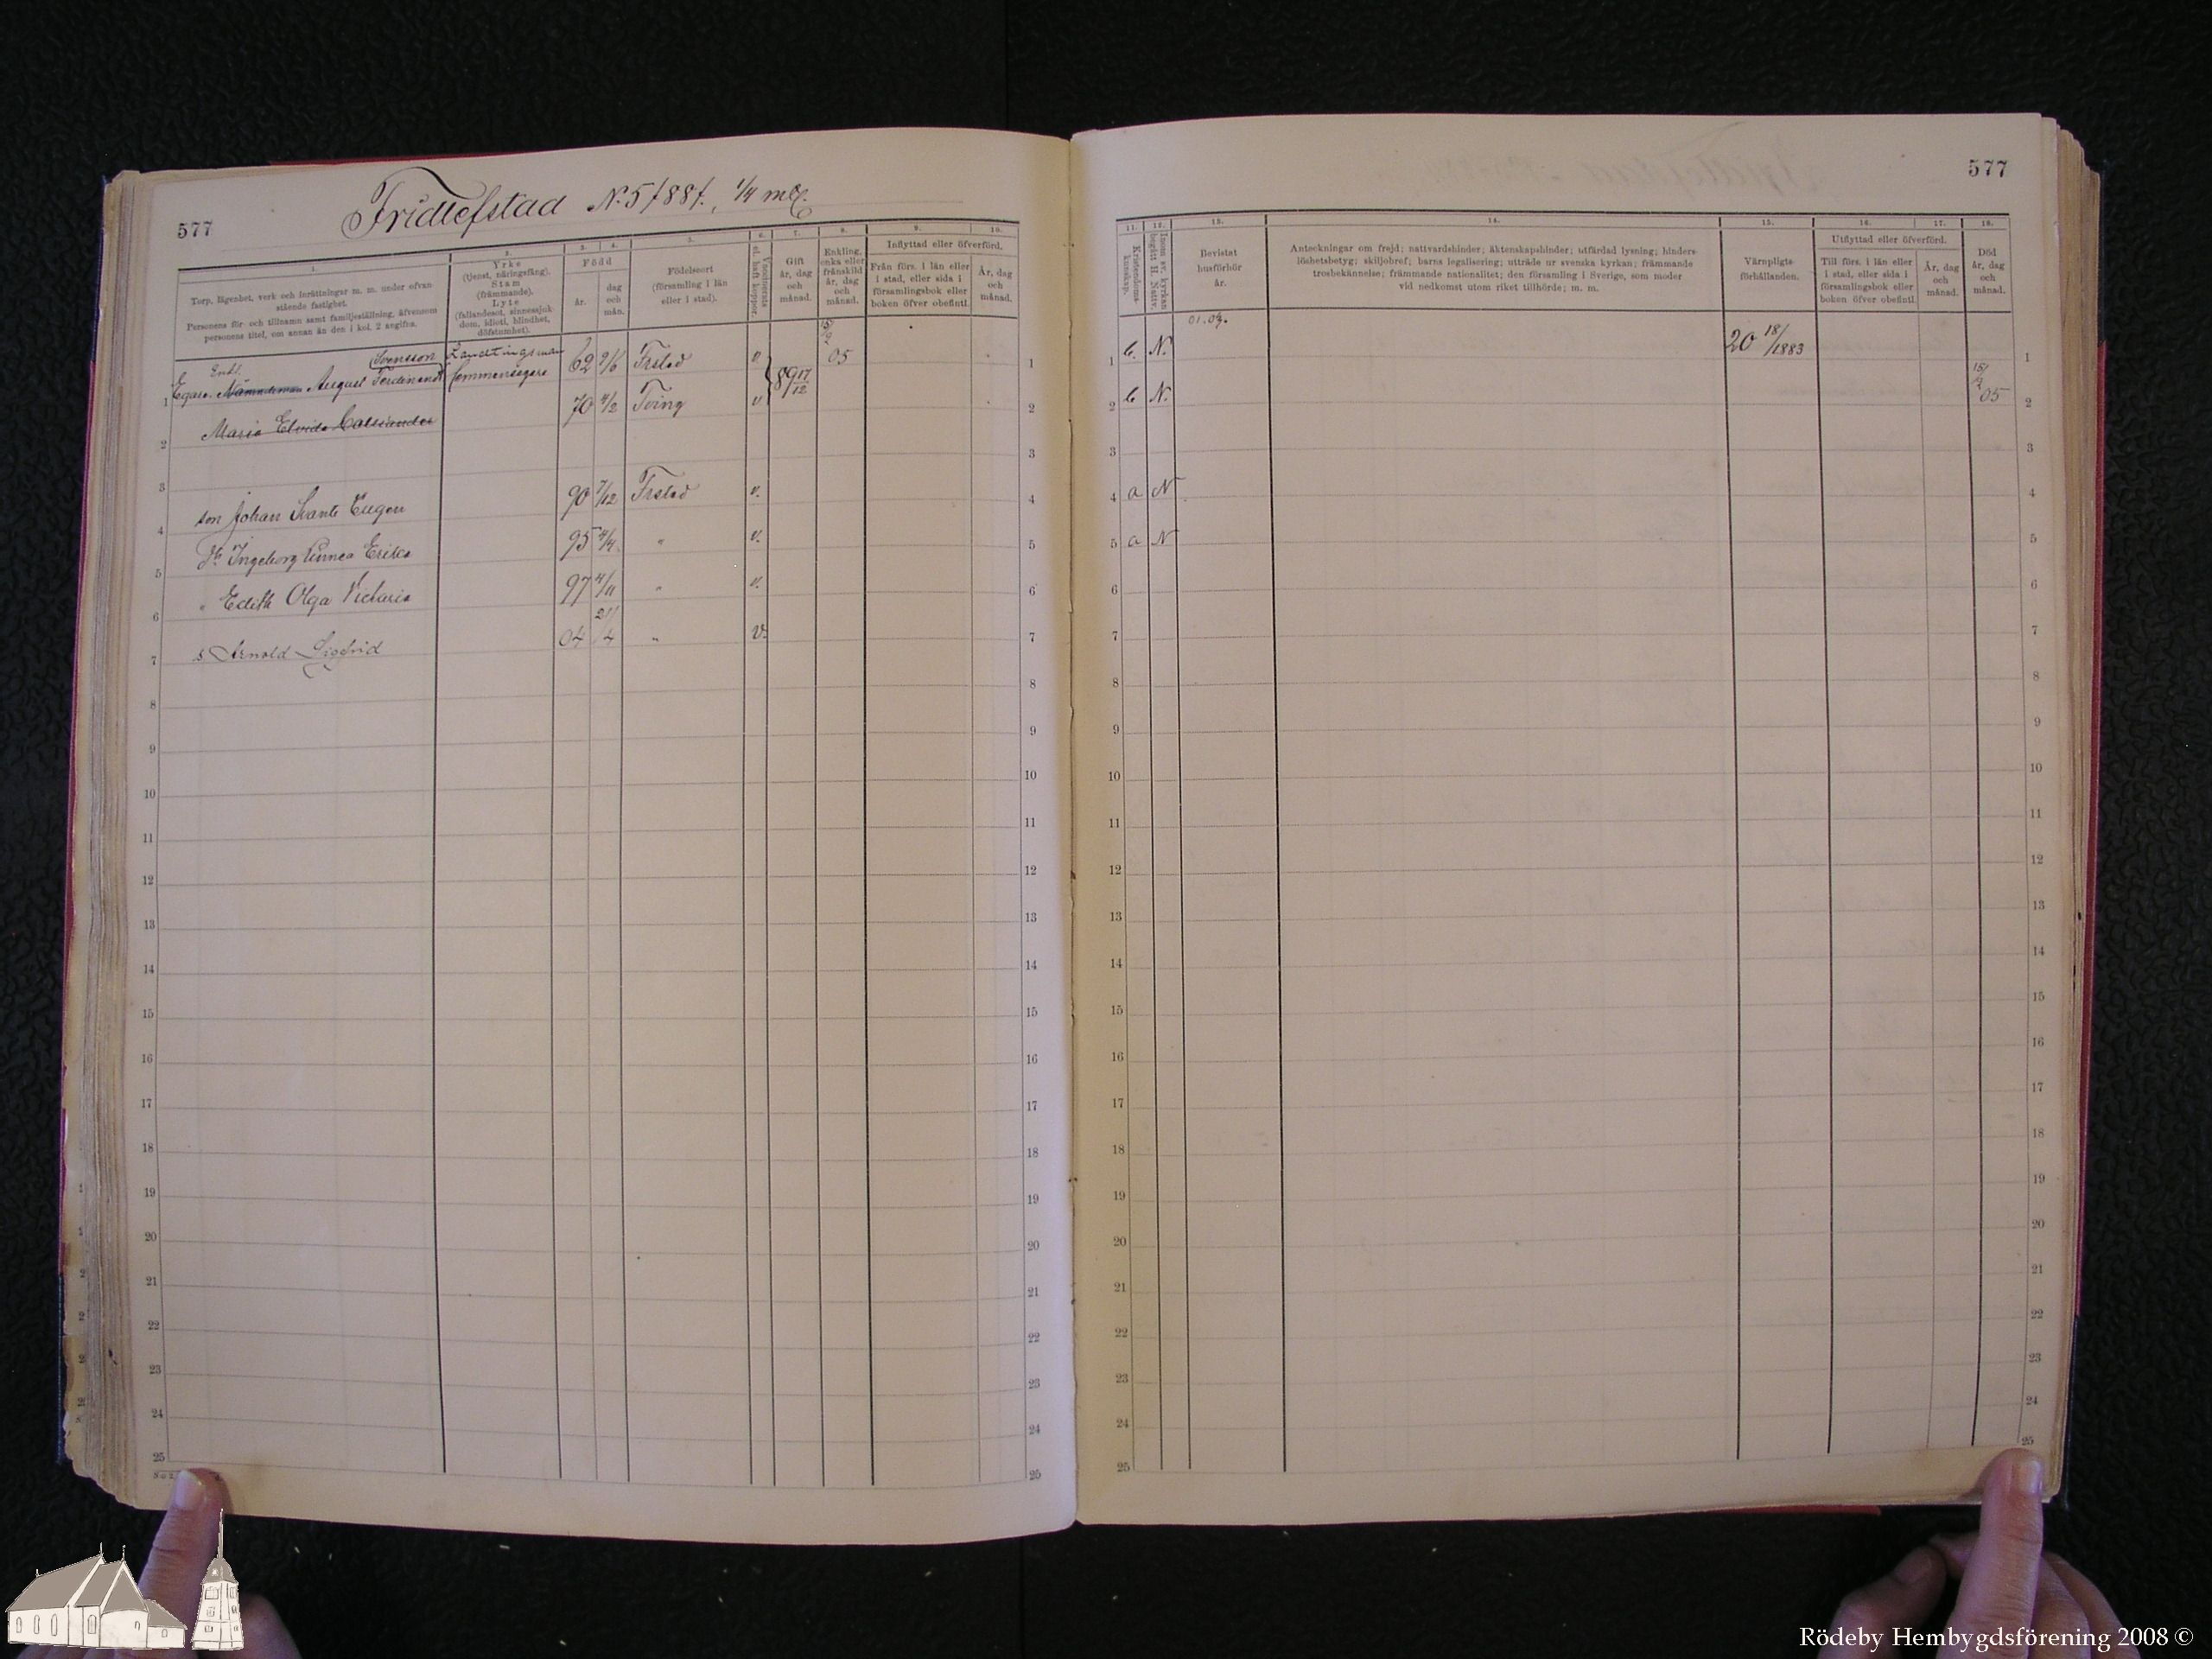 577
Fridlefstad N:5 /887., 1/4 mtl.
1.
Torp, lägenhet, verk och inrättningar m. m. under ofvan-
stående fastighet.
Personens för- och tillnamn samt familjeställning, äfvensom
personens titel, om annan än den i kol. 2 angifna.
2.
Yrke
(tjenst, näringsfång).
Stam
(främmande).
Lyte
(fallandesot, sinnessjuk-
dom, idioti, blindhet,
döfstumhet).
3. 4.
Född
år.
dag
och
mån.
5.
Födelseort
(församling i län
eller i stad).
6.
Vaccinerats
el. haft koppor.
7.
Gift
år, dag
och
månad.
8.
Enkling,
enka eller
frånskild
år, dag
och
månad.
9. 10.
Inflyttad eller öfverförd.
Från förs. i län eller
i stad, eller sida i
församlingsbok eller
boken öfver obefintl.
År, dag
och
månad.
Svensson Landtingsman
1 Egare. Enkl. Nämndeman August Ferdinand hemmansegare 62 9/6 Frstad v 89 17/12 15/2 05 1
2 Maria Elvida 70 4/2 Tving v 2
3 3
4 son Johan Svante Eugen 90 7/12 Frstad v. 4
5 dr. Ingeborg Linnea Erika 95 4/4 " v. 5
6 " Edith Olga Victoria 97 4/11 " v. 6
7 s. Arnold Sigfrid 04 21/4 " v. 7
8 8
9 9
10 10
11 11
12 12
13 13
14 14
15 15
16 16
17 17
18 18
19 19
20 20
21 21
22 22
23 23
24 24
25 25
577
11.
Kristendoms-
kunskap.
12.
Inom sv. kyrkan
begått H. Nattv.
13.
Bevistat
husförhör
år.
14.
Anteckningar om frejd; nattvardshinder; äktenskapshinder; utfärdad lysning; hinders-
löshetsbetyg; skiljobref; barns legalisering; utträde ur svenska kyrkan; främmande
trosbekännelse; främmande nationalitet; den församling i Sverige, som moder
vid nedkomst utom riket tillhörde; m. m.
15.
Värnpligts-
förhållanden.
16. 17.
Utflyttad eller öfverförd.
Till förs. i län eller
i stad, eller sida i
församlingsbok eller
boken öfver obefintl.
År, dag
och
månad.
18.
Död
år, dag
och
månad.
1 b. N. 20 18/1883 1
2 b N. 15/2 05 2
3 3
4 a N 4
5 a N 5
6 6
7 7
8 8
9 9
10 10
11 11
12 12
13 13
14 14
15 15
16 16
17 17
18 18
19 19
20 20
21 21
22 22
23 23
24 24
25 25
Rödeby Hembygdsförening 2008 ©